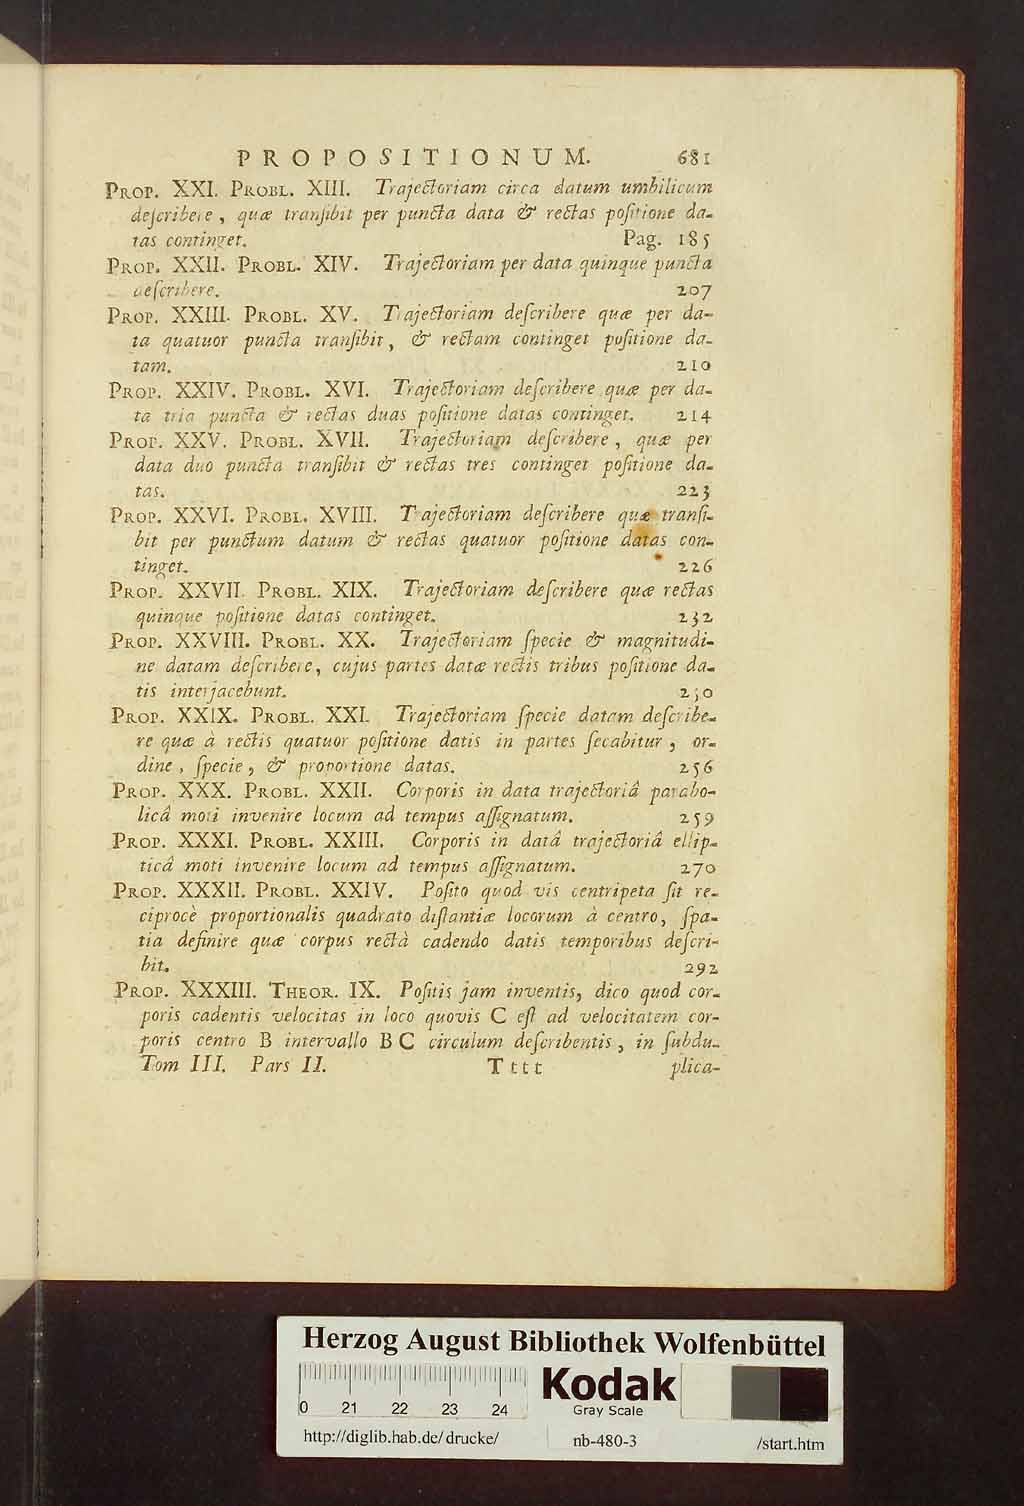 PROPOSITIONUM. 681
PROP. XXI. PROBL. XIII. Trajectoriam circa datum umbilicum
deſcribere, quæ tranſibit per puncta data & rectas poſitione da-
tas continget. Pag. 185
PROP. XXII. PROBL. XIV. Trajectoriam per data quinque puncta
deſcribere. 207
PROP. XXIII. PROBL. XV. Trajectoriam deſcribere quæ per da-
ta quatuor puncta tranſibit, & rectam continget poſitione da-
tam. 210
PROP. XXIV. PROBL. XVI. Trajectoriam deſcribere quæ per da-
ta tria puncta & rectas duas poſitione datas continget. 214
PROP. XXV. PROBL. XVII. Trajectoriam deſcribere, quæ per
data duo puncta tranſibit & rectas tres continget poſitione da-
tas. 223
PROP. XXVI. PROBL. XVIII. Trajectoriam deſcribere quæ tranſi-
bit per punctum datum & rectas quatuor poſitione datas con-
tinget. 226
PROP. XXVII. PROBL. XIX. Trajectoriam deſcribere quæ rectas
quinque poſitione datas continget. 232
PROP. XXVIII. PROBL. XX. Trajectoriam ſpecie & magnitudi-
ne datam deſcribere, cujus partes datæ rectis tribus poſitione da-
tis interjacebunt.
PROP. XXIX. PROBL. XXI. Trajectoriam ſpecie datam deſcribe-
re quæ à rectis quatuor poſitione datis in partes ſecabitur, or-
dine, ſpecie, & proportione datas. 256
PROP. XXX. PROBL. XXII. Corporis in data trajectoriâ parabo-
licâ moti invenire locum ad tempus aſſignatum. 259
PROP. XXXI. PROBL. XXIII. Corporis in datâ trajectoriâ ellip-
ticâ moti invenire locum ad tempus aſſignatum. 270
PROP. XXXII. PROBL. XXIV. Poſito quod vis centripeta ſit re-
ciprocè proportionalis quadrato diſtantiæ locorum à centro, ſpa-
tia definire quæ corpus rectà cadendo datis temporibus deſcri-
bit. 292
PROP. XXXIII. THEOR. IX. Poſitis jam inventis, dico quod cor-
poris cadentis velocitas in loco quovis C eſt ad velocitatem cor-
poris centro B intervallo BC circulum deſcribentis, in ſubdu-
Tom III. Pars II. Tttt plica-
Herzog August Bibliothek Wolfenbüttel
0 21 22 23 24 Kodak
Gray Scale
http://diglib.hab.de/drucke/ nb-480-3 /start.htm